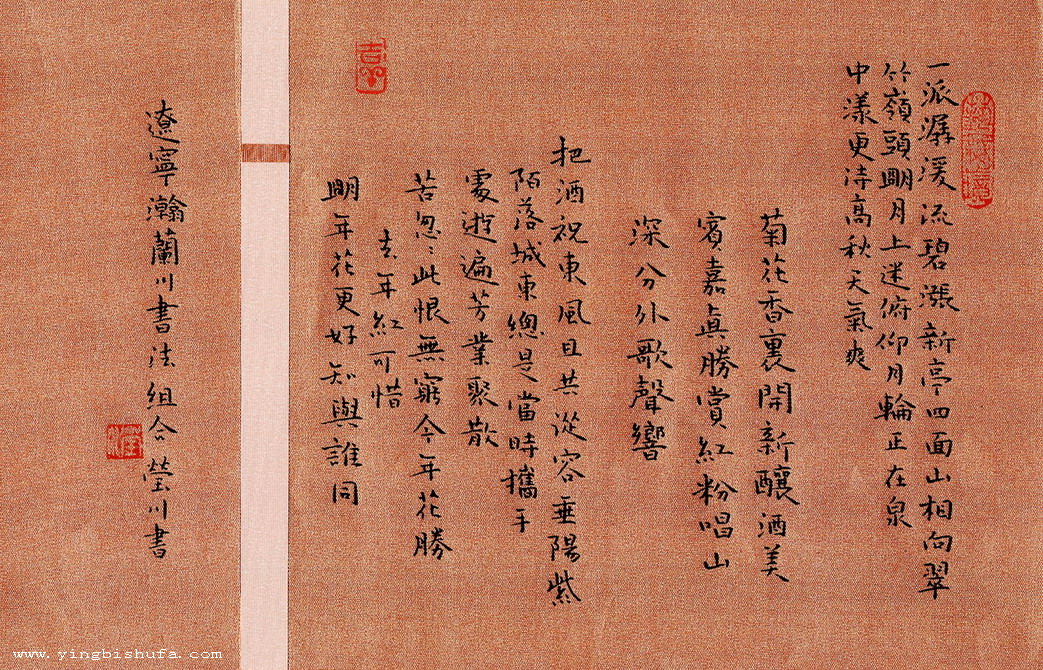 一派潺湲流碧漲新亭四面山相向翠
竹嶺頭朙月上迷俯仰月輪正在泉
中漾更待高秋天氣爽
菊花香裏開新釀酒美
賓嘉真勝賞紅粉唱山
深分外歌聲響
把酒祝東風且共從容垂陽紫
陌落城東總是當時攜手
處遊遍芳業聚散
苦忽〻此恨無窮今年花勝
去年紅可惜
朙年花更好知與誰同
遼寧瀚蘭川書法組合瑩川書
www.yingbishufa.com